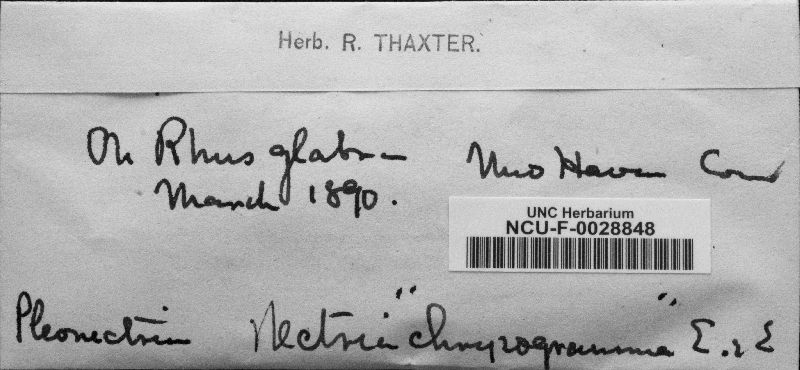 Herb. R. THAXTER.
On Rhus glabra New Haven Conn
March 1890.
UNC Herbarium
NCU-F-0028848
Pleonectria Nectria "chrysogramma" E. & E